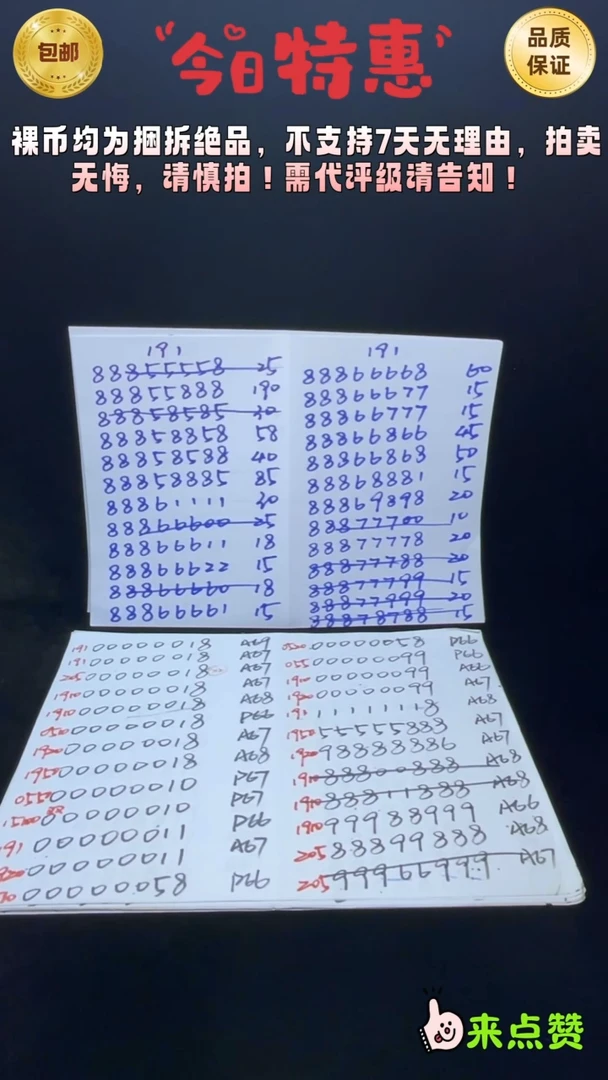 包邮
今日特惠
品质
保证
裸币均为捆拆绝品，不支持7天无理由，拍卖
无悔，请慎拍！需代评级请告知！
191
88855558 25
88855888 190
88858585 30
88858858 58
88858588 40
88858885 85
88861111 30
88866600 25
88866611 18
88866622 15
88866660 18
88866661 15
191
88866668 60
88866677 15
88866777 15
88866866 45
88866868 50
88868881 15
88869898 20
88877700 10
88877778 20
88877788 20
88877799 15
88877999 20
88878788 15
191 00000018 A69
191 00000018 A67
205 00000018 A67
1910 00000018 A68
1910 00000018 P66
0510 00000018 A67
1980 00000018 A68
1950 00000018 P67
055 00000010 P67
00000010 P66
191 00000011 A67
00000011
00000058 P66
0520 00000058 P66
055 00000099 P66
1910 00000099 A66
1980 00000099 A67
191 11111118 A68
1950 55555888 A67
1980 98888886 A67
1910 88800888 A68
1910 88811888 A68
1910 99988999 A66
205 88899888 A68
205 99966999 A67
来点赞